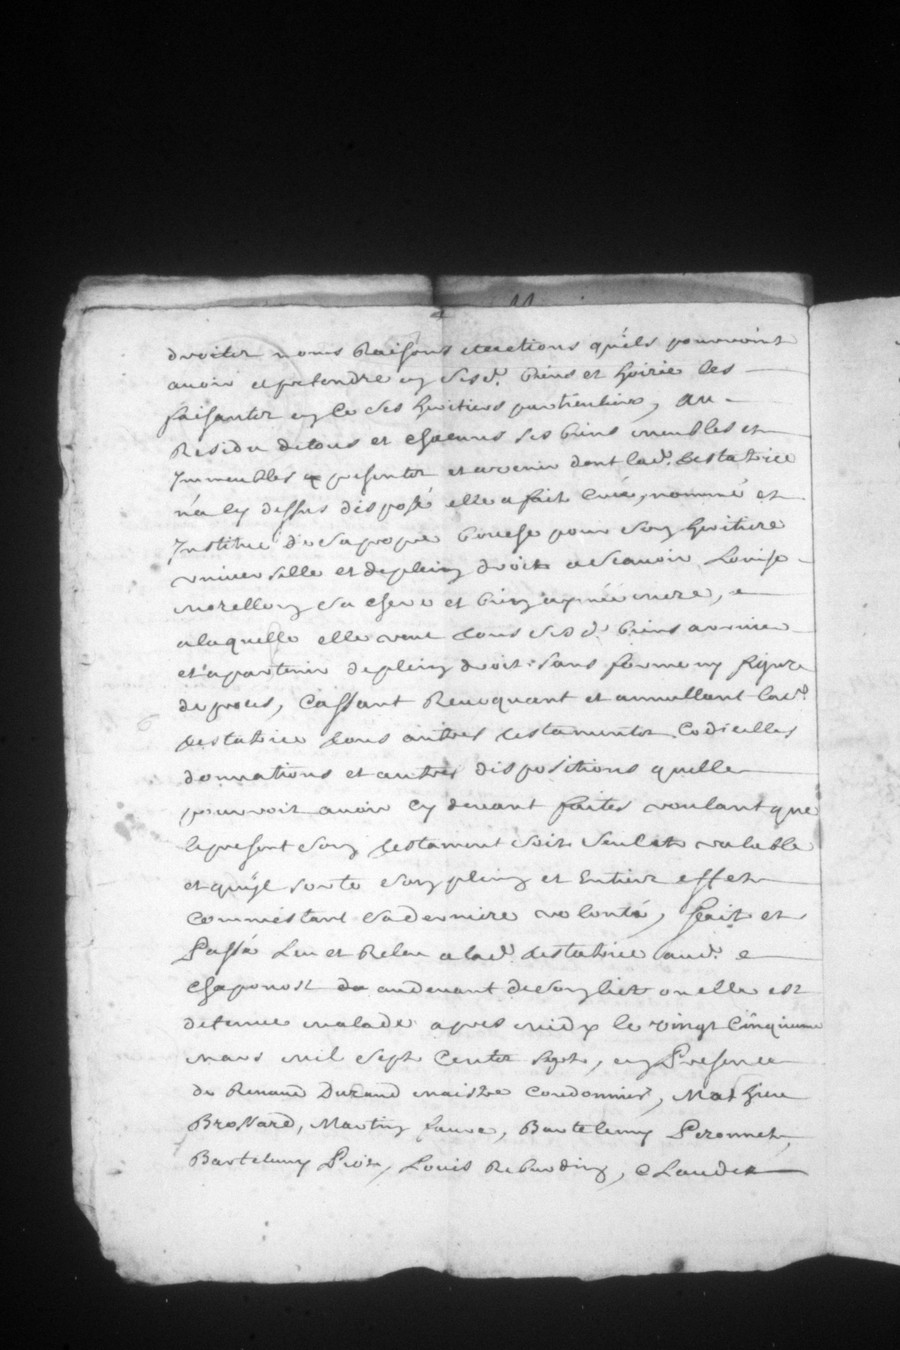 droits noms Raisons et actions quils pourroint
avoir et pretendre en sesd. biens et hoirie les
faisantz en ce ses heritiers particuliers, au
Residu de tous et chacuns ses biens meubles et
Immeubles presentz et avenir dont lad. testatrice
n'a cy dessus disposé elle a fait créé, nommé et
Institué de sa propre bouche pour son heritiere
universelle et de plein droit a scavoir Louise
morellon sa chere et bien aymée mere, a
a laquelle elle veut tous sesd. biens arriver
et apartenir de plein droit sans forme ny figure
de proces, Cassant Revoquant et annullant lad.
testatrice tous autres testamentz Codicelles
donnations et autres dispositions quelle
pourroit avoir cy devant faites voulant que
le present son testament soit seul et valable
et quil sorte son plein et Entier effet
comme estant sa derniere volonté, fait et
Passé Leu et Releu a lad. testatrice aud.
chaponost au devant de son liet ou elle est
detenue malade apres midy le vingt cinquieme
mars mil sept centz sept, en Presence
de Renaud Durand maistre cordonnier, Mathieu
Brossard, Martin faure, Bartelemy Peronnet,
Bartelemy Piot, Louis Reburdin, Claude